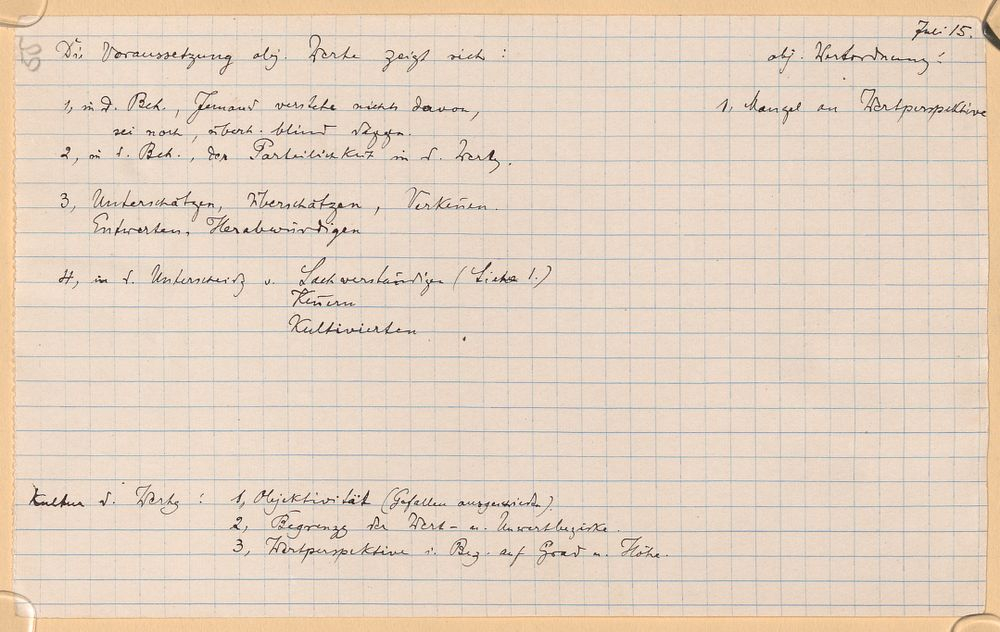 Juli 15.
Die Voraussetzung obj. Werte zeigt sich :
obj. Wertordnung:
1, in d. Beh., Jemand verstehe nichts davon,
sei noch, überh. blind dagegen.
1, Mangel an Wertperspektive
2, in d. Beh., der Parteilichkeit in d. Wertg.
3, Unterschätzen, Überschätzen, Verkennen.
Entwerten, Herabwürdigen
4, in d. Unterscheidg v. Sachverständigen (Siehe 1.)
Kennern
Kultivierten
Kultur d. Wertg : 1, Objektivität (Gefallen ausgeschieden).
2, Begrenzg der Wert- u. Unwertbezirke.
3, Wertperspektive i. Bez. auf Grad u. Höhe.